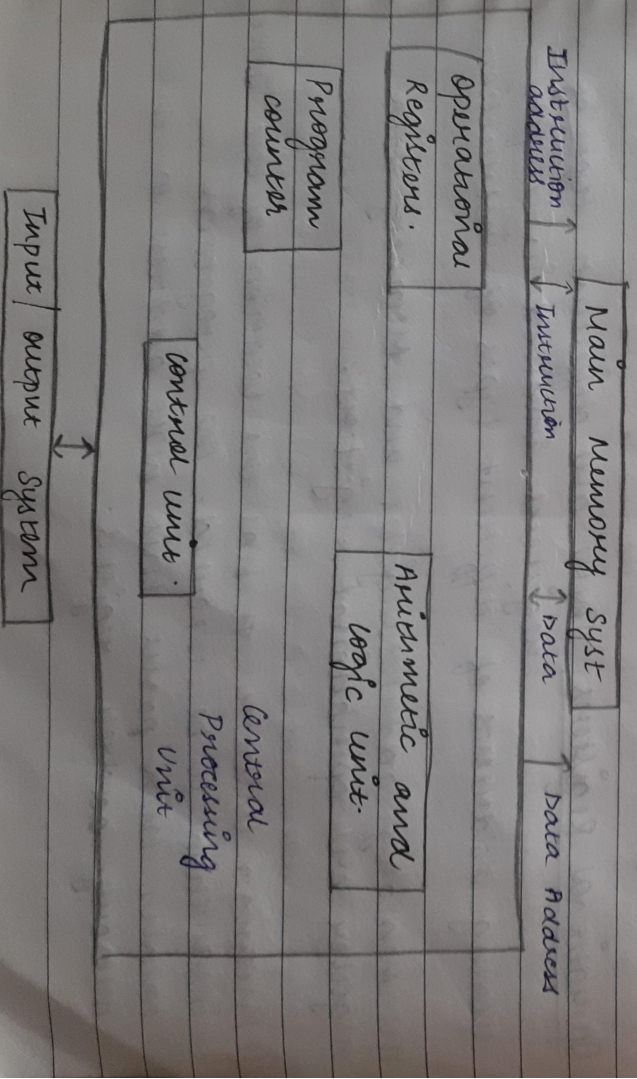 Main Memory Syst
Instruction
address
Instruction
Data
Data Address
Operational
Registers.
Arithmetic and
logic unit.
Program
counter
control unit.
Central
Processing
Unit
Input/output System